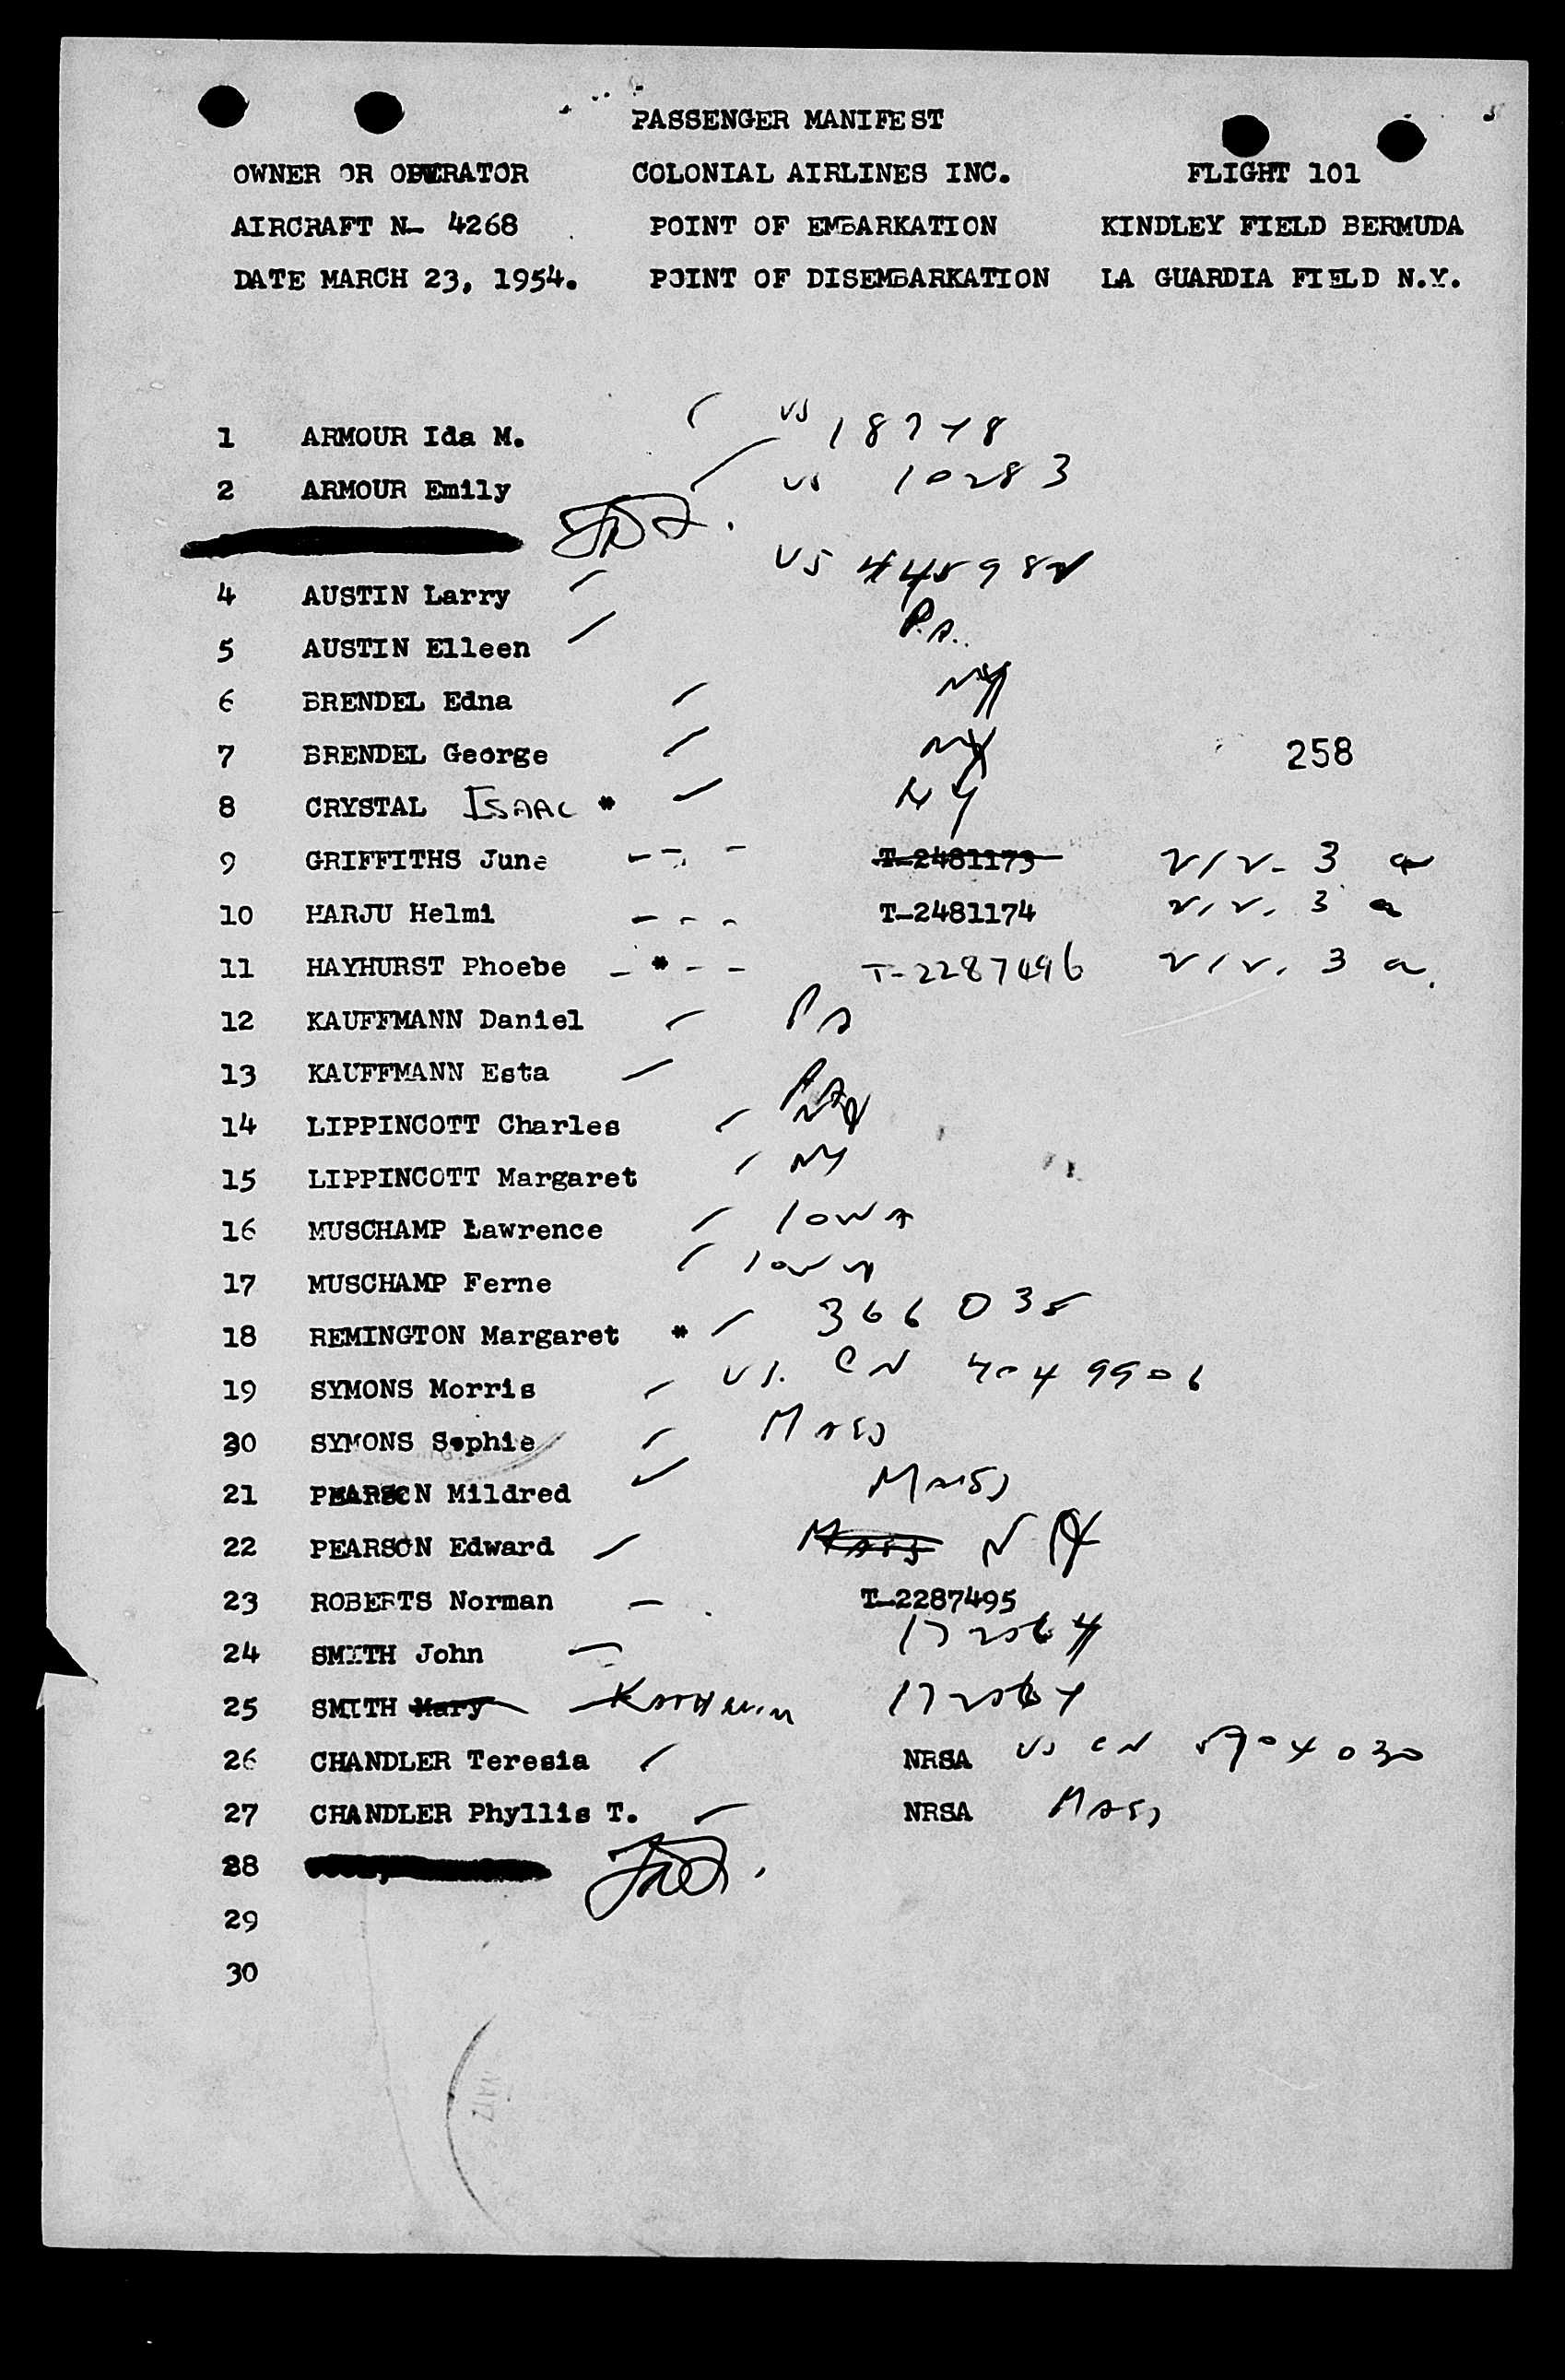 PASSENGER MANIFEST
OWNER OR OPERATOR COLONIAL AIRLINES INC. FLIGHT 101
AIRCRAFT N- 4268 POINT OF EMBARKATION KINDLEY FIELD BERMUDA
DATE MARCH 23, 1954. POINT OF DISEMBARKATION LA GUARDIA FIELD N.Y.
1 ARMOUR Ida M. US
2 ARMOUR Emily US 10283
4 AUSTIN Larry US
5 AUSTIN Elleen P.A.
6 BRENDEL Edna NY
7 BRENDEL George NY 258
8 CRYSTAL ISAAC * NY
9 GRIFFITHS June T-2481173
10 HARJU Helmi T-2481174
11 HAYHURST Phoebe - * - - T-2287496
12 KAUFFMANN Daniel PA
13 KAUFFMANN Esta PA
14 LIPPINCOTT Charles
15 LIPPINCOTT Margaret NY
16 MUSCHAMP Lawrence IOWA
17 MUSCHAMP Ferne IOWA
18 REMINGTON Margaret * 366038
19 SYMONS Morris US. CN
20 SYMONS Sophie MASS
21 PEARSON Mildred MASS
22 PEARSON Edward MASS
23 ROBERTS Norman T-2287495
24 SMITH John
25 SMITH Mary
26 CHANDLER Teresia NRSA US CN
27 CHANDLER Phyllis T. NRSA MASS
28
29
30